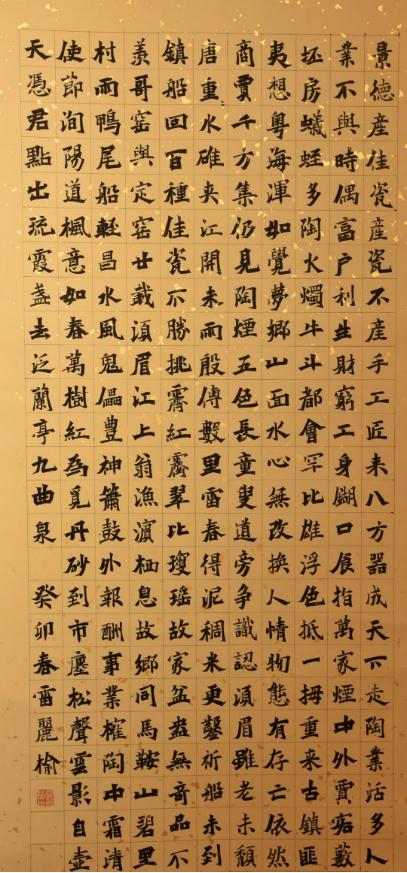 景德産佳瓷產瓷不產手工匠来八方器成天下走陶業活多人
業不與時偶富户利生財窮工身餬口食指萬家煙中外賈客藪
坯房蟻蛭多陶火燭牛斗都會罕比雄浮色抵一拇重来古鎮匪
夷想粤海渾如覺夢鄉山面水心無改換人情物態有存亡依然
商賈千方集仍見陶煙五色長童叟道旁争識認湏眉雖老未頹
唐重水碓夹江開未雨殷傳數里雷春得泥稠米更鑿祈船未到
鎮船回百種佳瓷不勝挑霽紅霽翠比瓊瑶故家盆盎無奇品不
羡哥窑與定窑廿載湏眉江上翁漁濵栖息故鄉同馬鞍山碧里
村雨鴨尾船輕昌水風鬼儡豊神簫鼓外報酬事業榷陶中霜清
使節洵陽道楓意如春萬樹紅為覓丹砂到市廛松聲雲影自壺
天憑君點出流霞盏去泛蘭亭九曲泉
癸卯春雷麗榆